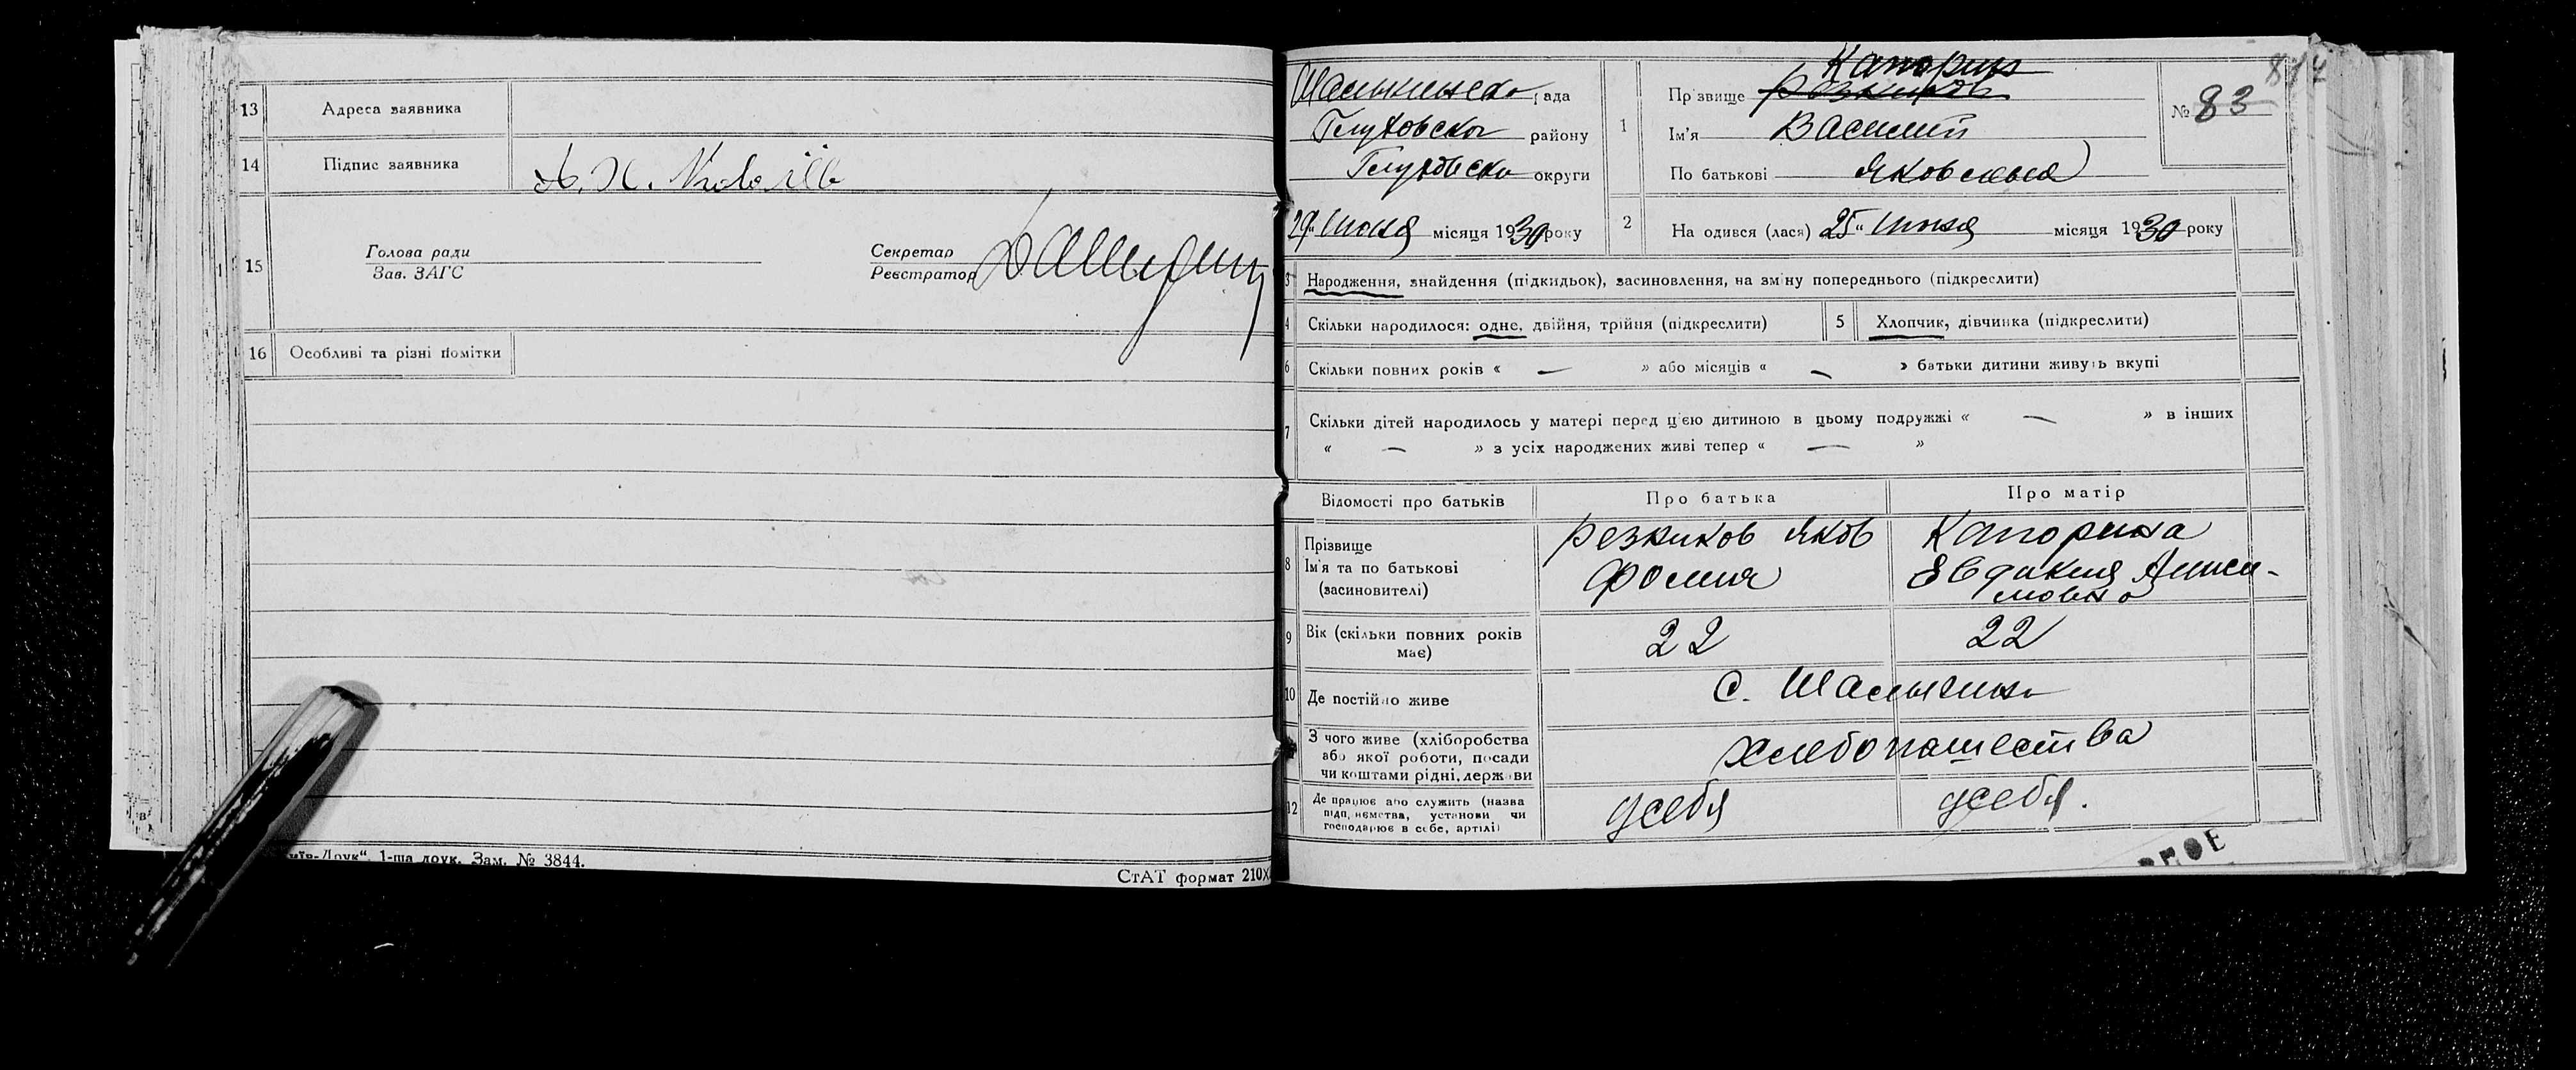 13 Адреса заявника
14 Підпис заявника
15 Голова ради
Зав. ЗАГС
Секретар
Реєстратор
16 Особливі та різні помітки
1-ша друк. Зам. № 3844.
СтАТ формат 210Х
814
Шалыгинско рада
Глуховско району
Глуховско округи
29 Июня місяця 1930 року
1 Капорин
Прізвище Резников
Ім'я Василий
По батькові Яковлевич
№ 83
2 Народився (лася) 25 " Июня місяця 1930 року
3 Народження, знайдення (підкидьок), засиновлення, на зміну попереднього (підкреслити)
4 Скільки народилося: одне, двійня, трійня (підкреслити)
5 Хлопчик, дівчинка (підкреслити)
6 Скільки повних років « — » або місяців « — » батьки дитини живуть вкупі
7 Скільки дітей народилось у матері перед цією дитиною в цьому подружжі « — » в інших
« — » з усіх народжених живі тепер « — »
Відомості про батьків Про батька Про матір
8 Прізвище
Ім'я та по батькові
(засиновителі)
Резников Яков
Фомич
Капорина
Евдокия Аниси-
мовна
9 Вік (скільки повних років
має)
22 22
10 Де постійно живе с. Шалыгино
З чого живе (хліборобства
або якої роботи, посади
чи коштами рідні, держави
хлебопашества
12 Де працює або служить (назва
підприємства, установи чи
господарює в себе, артілі)
усебя усебя.